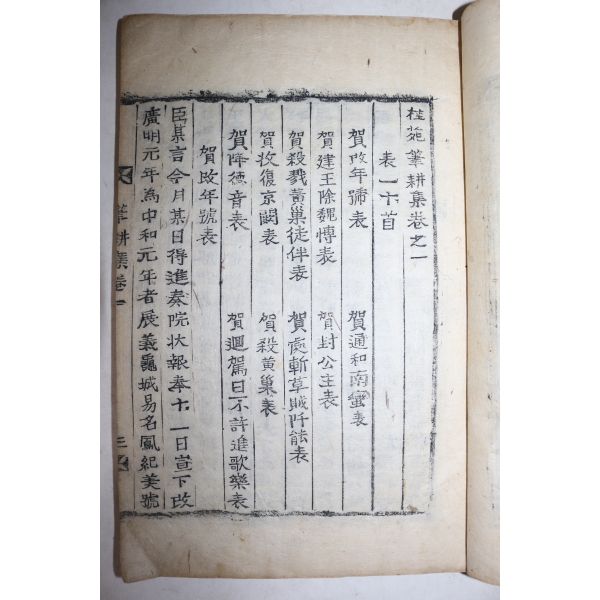 桂苑筆耕集卷之一
表一十首
賀改年號表 賀通和南蠻表
賀建王除魏博表 賀封公主表
賀殺戮黃巢徒伴表 賀處斬草賊阡能表
賀收復京闕表 賀殺黃巢表
賀降德音表 賀迴駕日不許進歌樂表
賀改年號表
臣某言今月某日得進奏院狀報奉十一日宣下改
廣明元年為中和元年者展義龜城易名鳳紀美號
筆耕集卷一